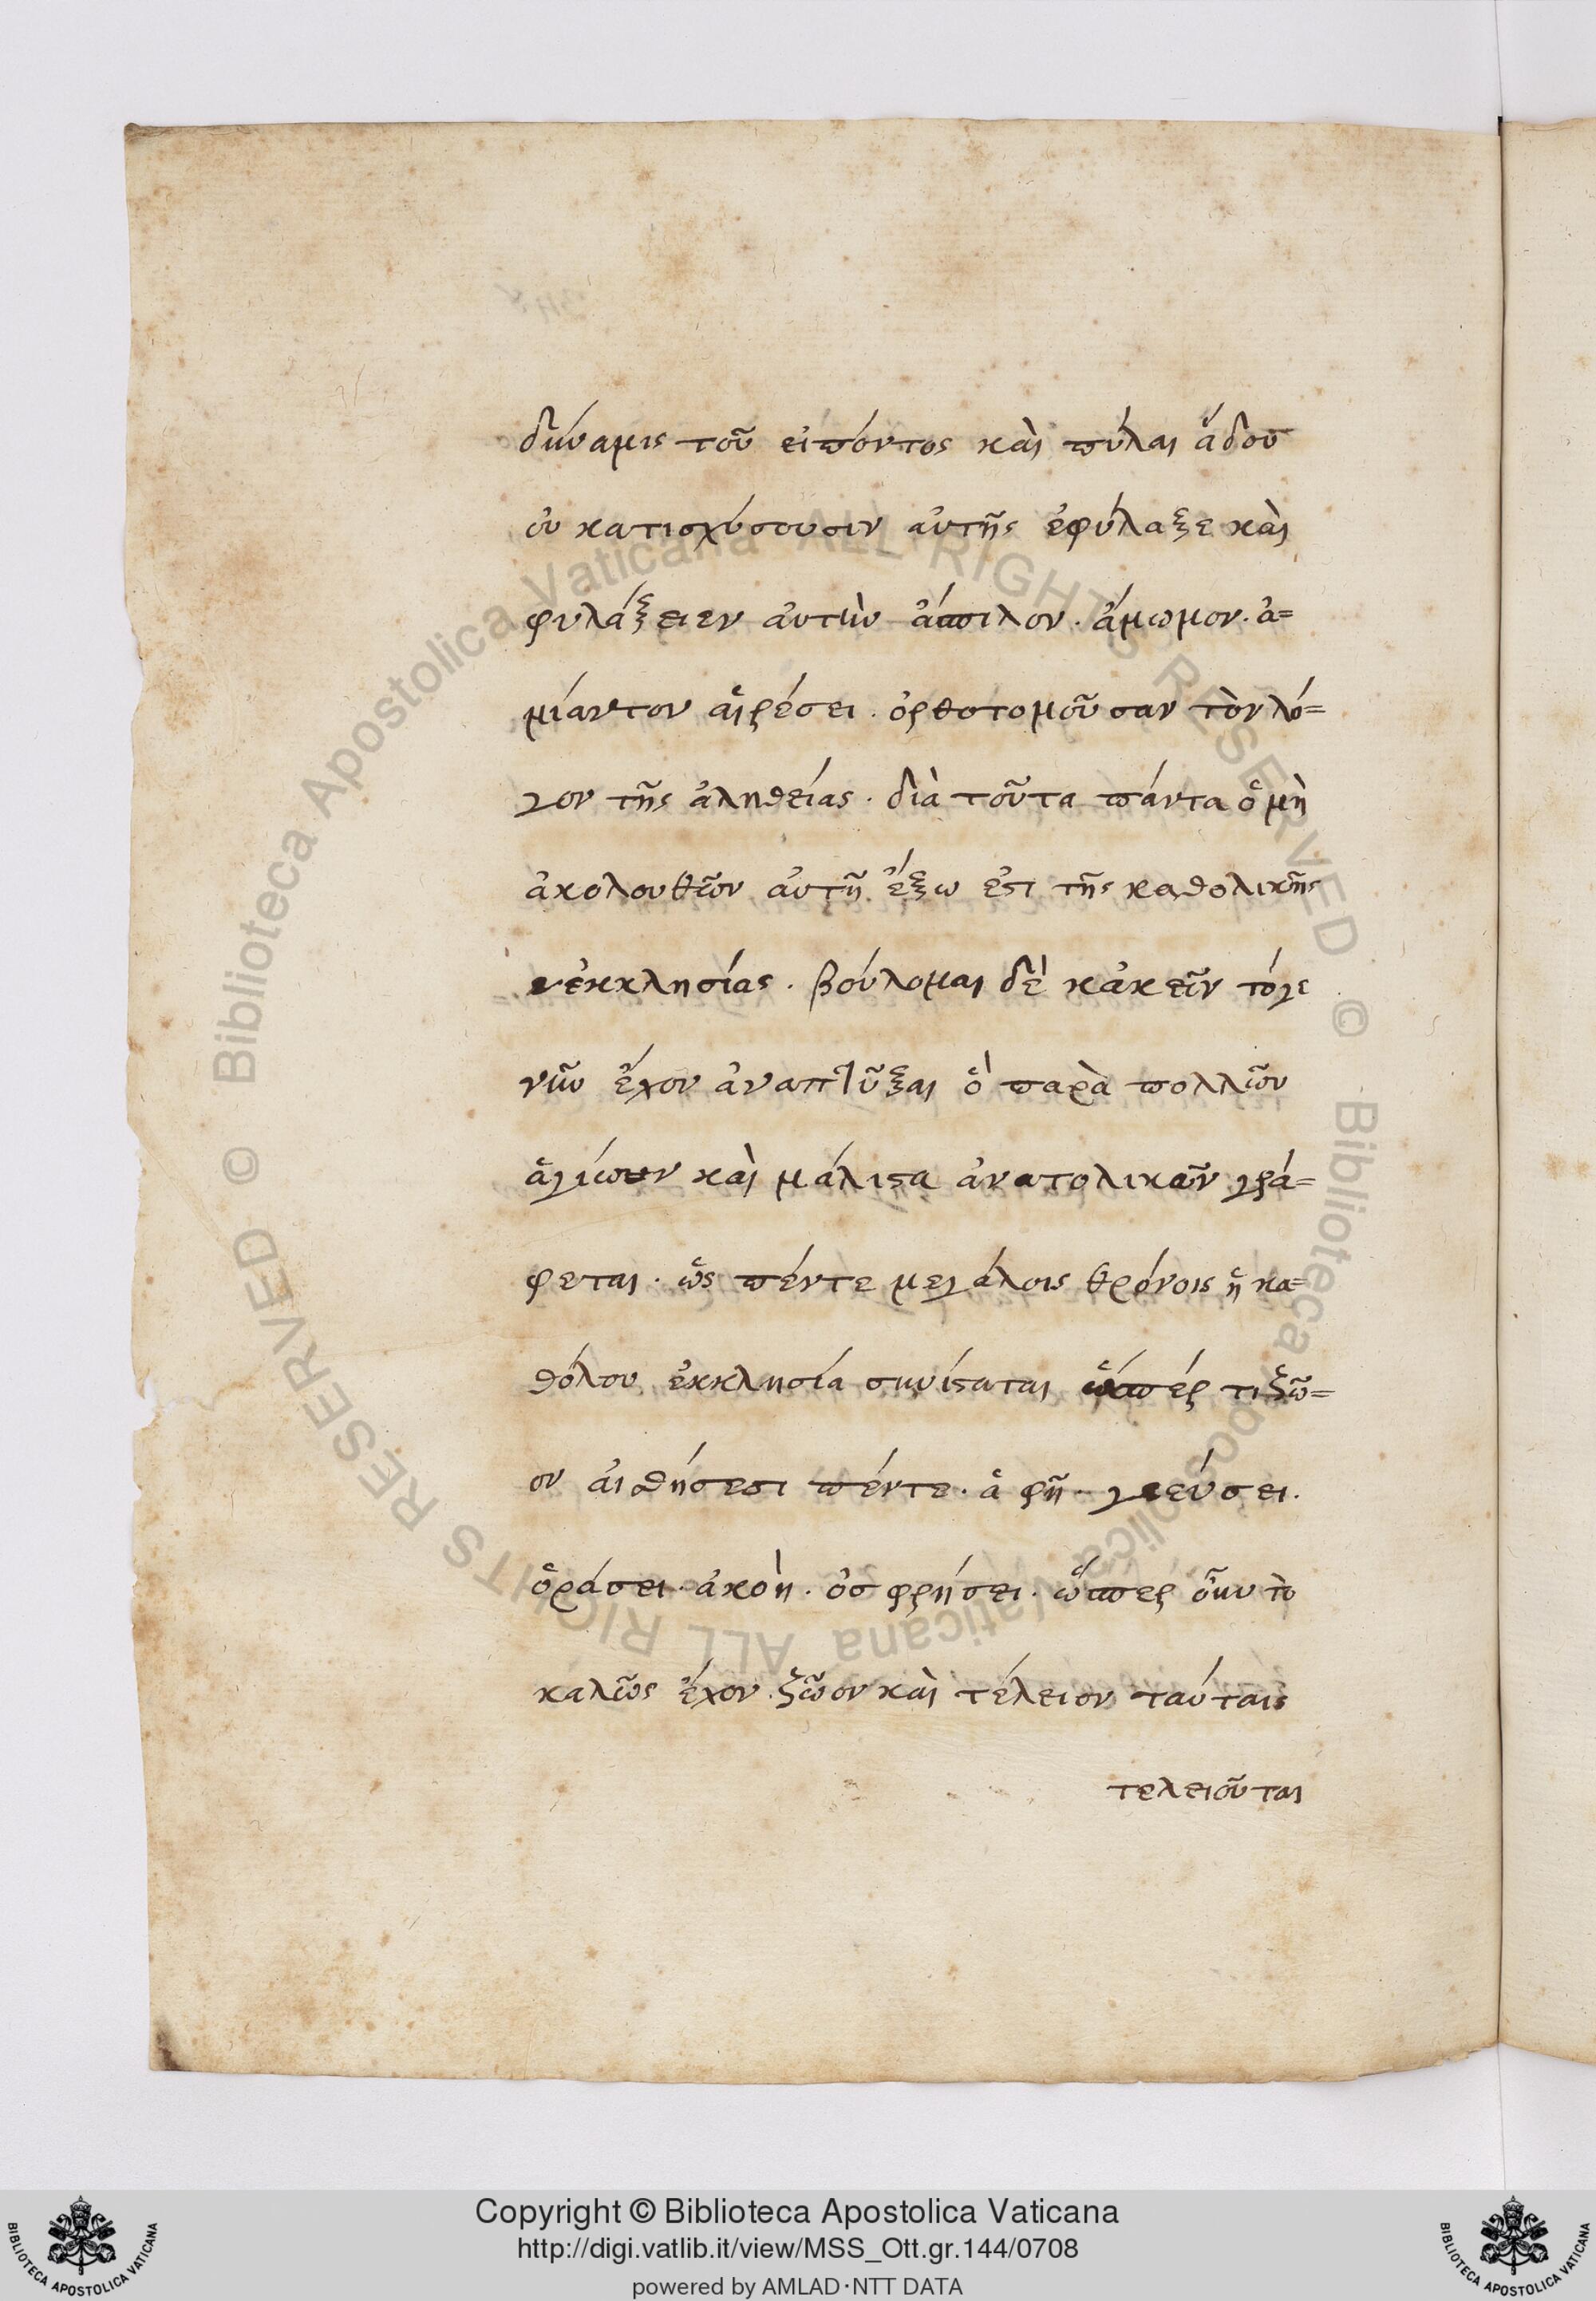 δύναμις τοῦ εἰπόντος καὶ πύλαι ἅδου
οὐ κατισχύσουσιν αὐτῆς ἐφύλαξε καὶ
φυλάξειεν αὐτὴν ἄσπιλον · ἄμωμον · ἀ=
μίαντον αἱρέσει · ὀρθοτομοῦσαν τὸν λό=
γον τῆς ἀληθείας · διὰ τοῦτα πάντα ὁ μὴ
ἀκολουθῶν αὐτῇ ἔξω ἐστι τῆς καθολικῆς
ἐκκλησίας · βούλομαι δὲ κἀκεῖν τόγε
νῦν ἔχον ἀναπτῦξαι ὃ παρὰ πολλῶν
ἁγίων καὶ μάλιστα ἀνατολικῶν γρά=
φεται · ὡς πέντε μεγάλοις θρόνοις ἡ κα=
θόλου ἐκκλησία συνίσταται ὥσπερ τι ζῶ=
ον αἰσθήσεσι πέντε · ἁφῇ · γεύσει ·
ὁράσει · ἀκοῇ · ὀσφρήσει · ὥσπερ οὖν τὸ
καλῶς ἔχον ζῶον καὶ τέλειον ταύταις
τελειοῦται
Copyright © Biblioteca Apostolica Vaticana
http://digi.vatlib.it/view/MSS_Ott.gr.144/0708
powered by AMLAD·NTT DATA
BIBLIOTECA APOSTOLICA VATICANA
BIBLIOTECA APOSTOLICA VATICANA
© Biblioteca Apostolica Vaticana ALL RIGHTS RESERVED © Biblioteca Apostolica Vaticana ALL RIGHTS RESERVED